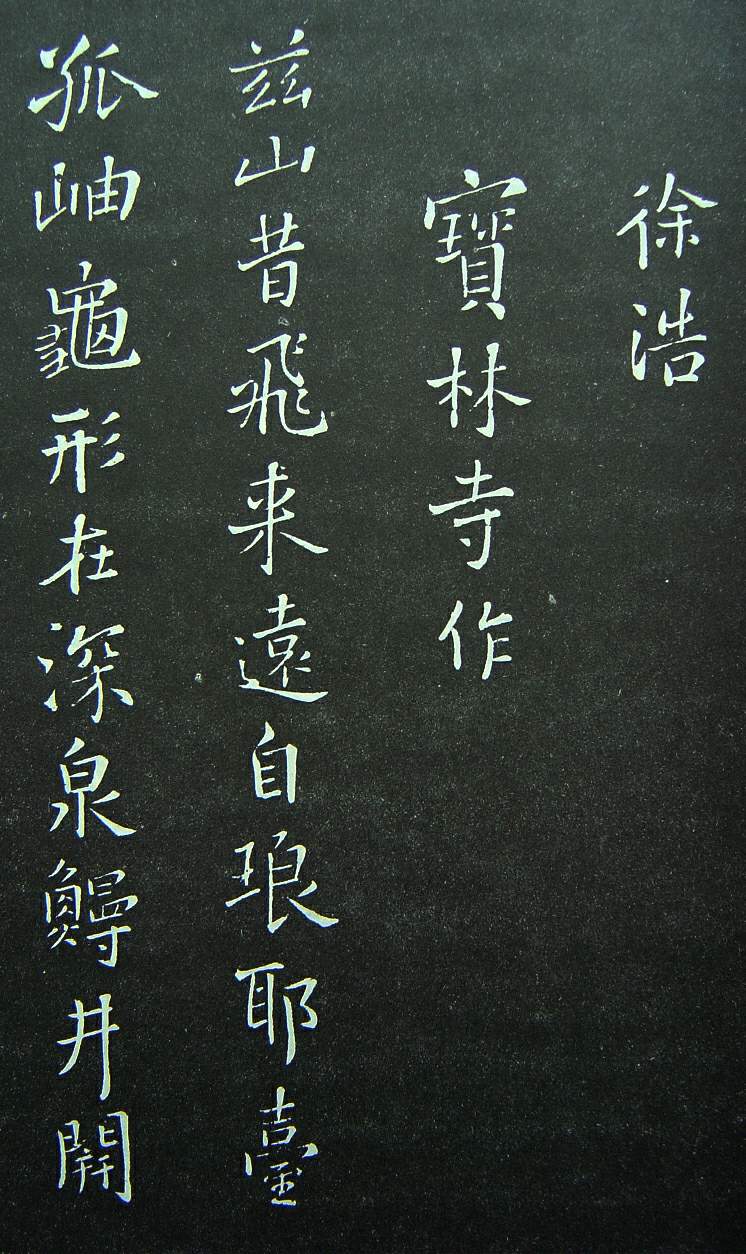 徐浩
寶林寺作
兹山昔飛来遠自琅耶臺
孤岫龜形在深泉鰻井開